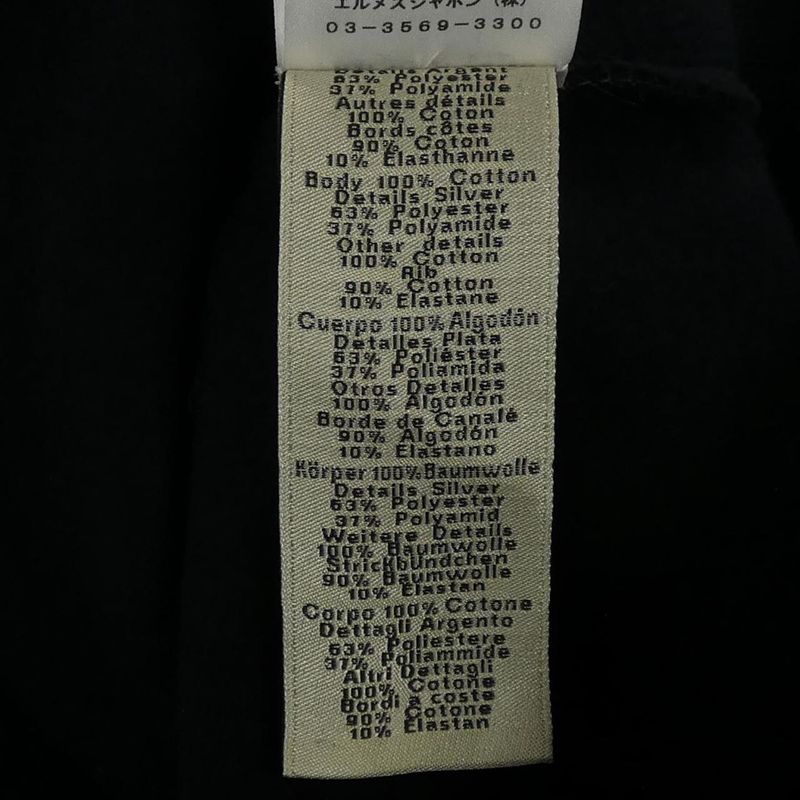 エルメスジャポン(株)
03-3569-3300
Détails Argent
63% Polyester
37% Polyamide
Autres détails
100% Coton
Bords côtes
90% Coton
10% Elasthanne
Body 100% Cotton
Details Silver
63% Polyester
37% Polyamide
Other details
100% Cotton
Rib
90% Cotton
10% Elastane
Cuerpo 100% Algodón
Detalles Plata
63% Poliéster
37% Poliamida
Otros Detalles
100% Algodón
Borde de Canalé
90% Algodón
10% Elastano
Körper 100% Baumwolle
Details Silver
63% Polyester
37% Polyamid
Weitere Details
100% Baumwolle
Strickbündchen
90% Baumwolle
10% Elastan
Corpo 100% Cotone
Dettagli Argento
63% Poliestere
37% Poliammide
Altri Dettagli
100% Cotone
Bordi a coste
90% Cotone
10% Elastan